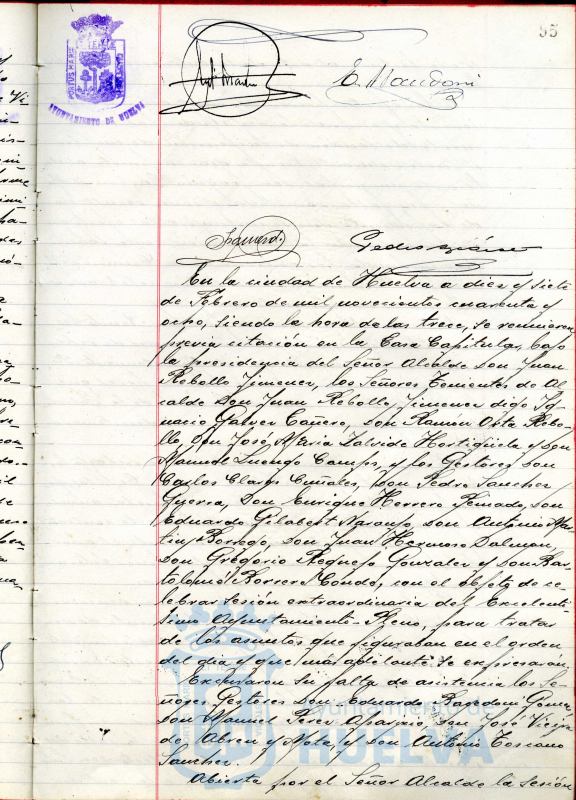 95
E. Mandoni
AYUNTAMIENTO DE HUELVA
Izquierdo
Pedro
En la ciudad de Huelva a diez y siete
de Febrero de mil novecientos cuarenta y
ocho, siendo la hora de las trece, se reunieron
previa citación en la Casa Capitular, bajo
la presidencia del Señor Alcalde Don Juan
Rebollo Jimenez, los Señores Tenientes de Al
calde Don Juan Rebollo Jimenez digo Ig
nacio Galvez Cañero, don Ramón Orta Rebo
llo, Don José María Lalvide Hortigüela y don
Manuel Luengo Camps, y los Gestores don
Carlos Claros Cuñales, don Pedro Sanchez
Guerra, Don Enrique Herrero Peinado, don
Eduardo Gilabert Naranjo, don Antonio Mar
tin Borrego, don Juan Hermoso Dalman,
don Gregorio Requejo Gonzalez y don Bar
tolomé Borrero Conde, con el objeto de ce-
lebrar sesión extraordinaria del Excelentí
simo Ayuntamiento Pleno, para tratar
de los asuntos que figuraban en el orden
del día y que más adelante se expresarán.
Excusaron su falta de asistencia los Se
ñores Gestores don Eduardo
don Manuel Perez Aparicio don José
de Abreu y Mota, y don Antonio Toscano
Sanchez.
Abierta por el Señor Alcalde la sesión
Ayuntamiento de
HUELVA